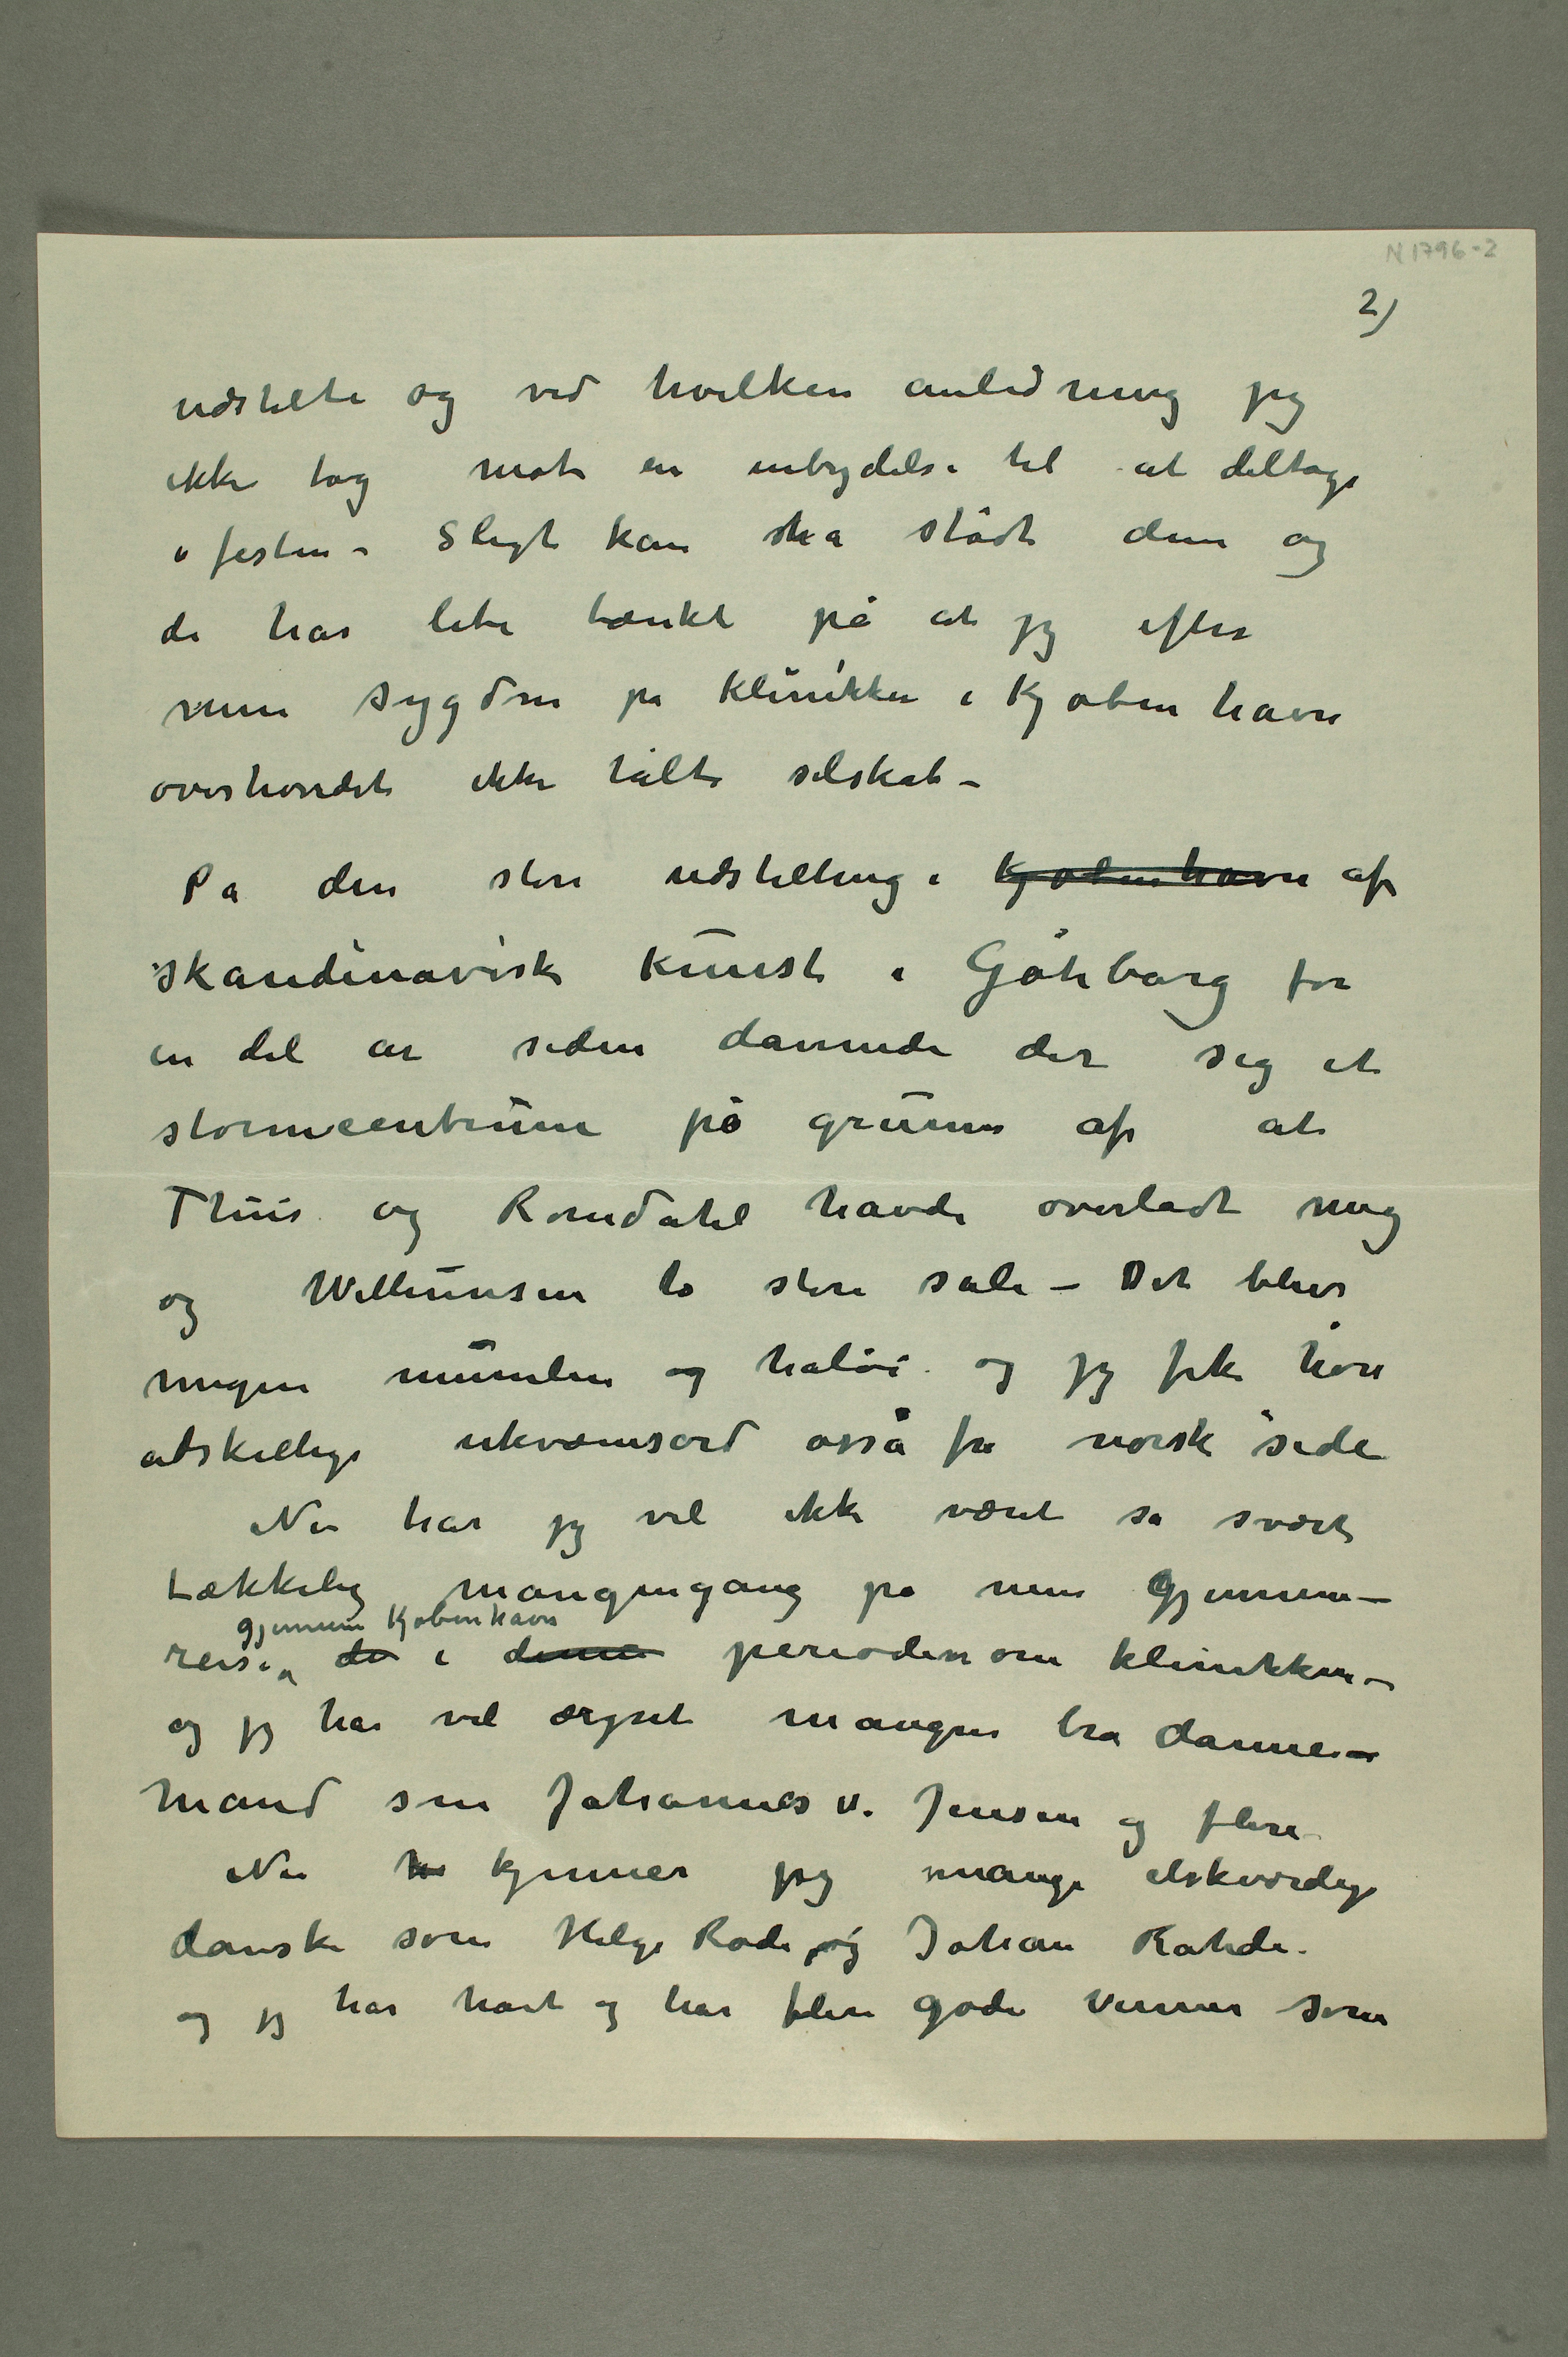 N 1796-2
2)
udstilte og ved hvilken anledning jeg
ikke tog mot en inbydelse til at deltage
i festen – Sligt kan ha stödt dem og
de har lite tænkt på at jeg efter
min sygdom på klinikken i Kjøbenhavn
overhovedet ikke tålte selskab –
På den store udstilling i Kjøbenhavn af
skandinavisk kunst i Göteborg for
en del år siden dannede der sig et
stormcentrum på grunn af at
Thiis og Romdahl havde overladt mig
og Willumsen to store sale – Det blev
megen mumlen og halöi og jeg fik høre
adskillige ukvemsord også fra norsk side
Nu har jeg vel ikke været så svært
tækkelig mangengang på min gjennem–
gjennem Kjøbenhavn
reise de i denne perioden om klinikken –
og jeg har vel ærgret mangen bra danne–
mand som Johannes V. Jensen og flere
Nu h kjenner jeg mange elskværdige
danske som Helge Rode og Johan Rohde.
og jeg har havt og har flere gode venner som